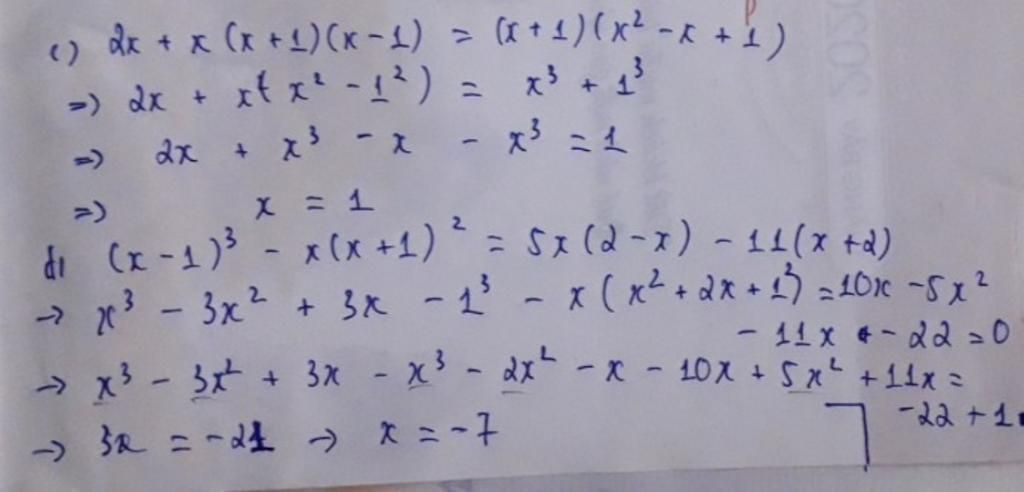 c) 2x + x (x + 1)(x - 1) = (x + 1)(x² - x + 1)
=) 2x + x( x² - 1²) = x³ + 1³
=) 2x + x³ - x - x³ = 1
=) x = 1
d) (x - 1)³ - x(x + 1)² = 5x(2 - x) - 11(x + 2)
→ x³ - 3x² + 3x - 1³ - x ( x² + 2x + 1²) = 10x - 5x²
- 11x - 22 = 0
→ x³ - 3x² + 3x - x³ - 2x² - x - 10x + 5x² + 11x =
-22 + 1
→ 3x = -21 → x = -7